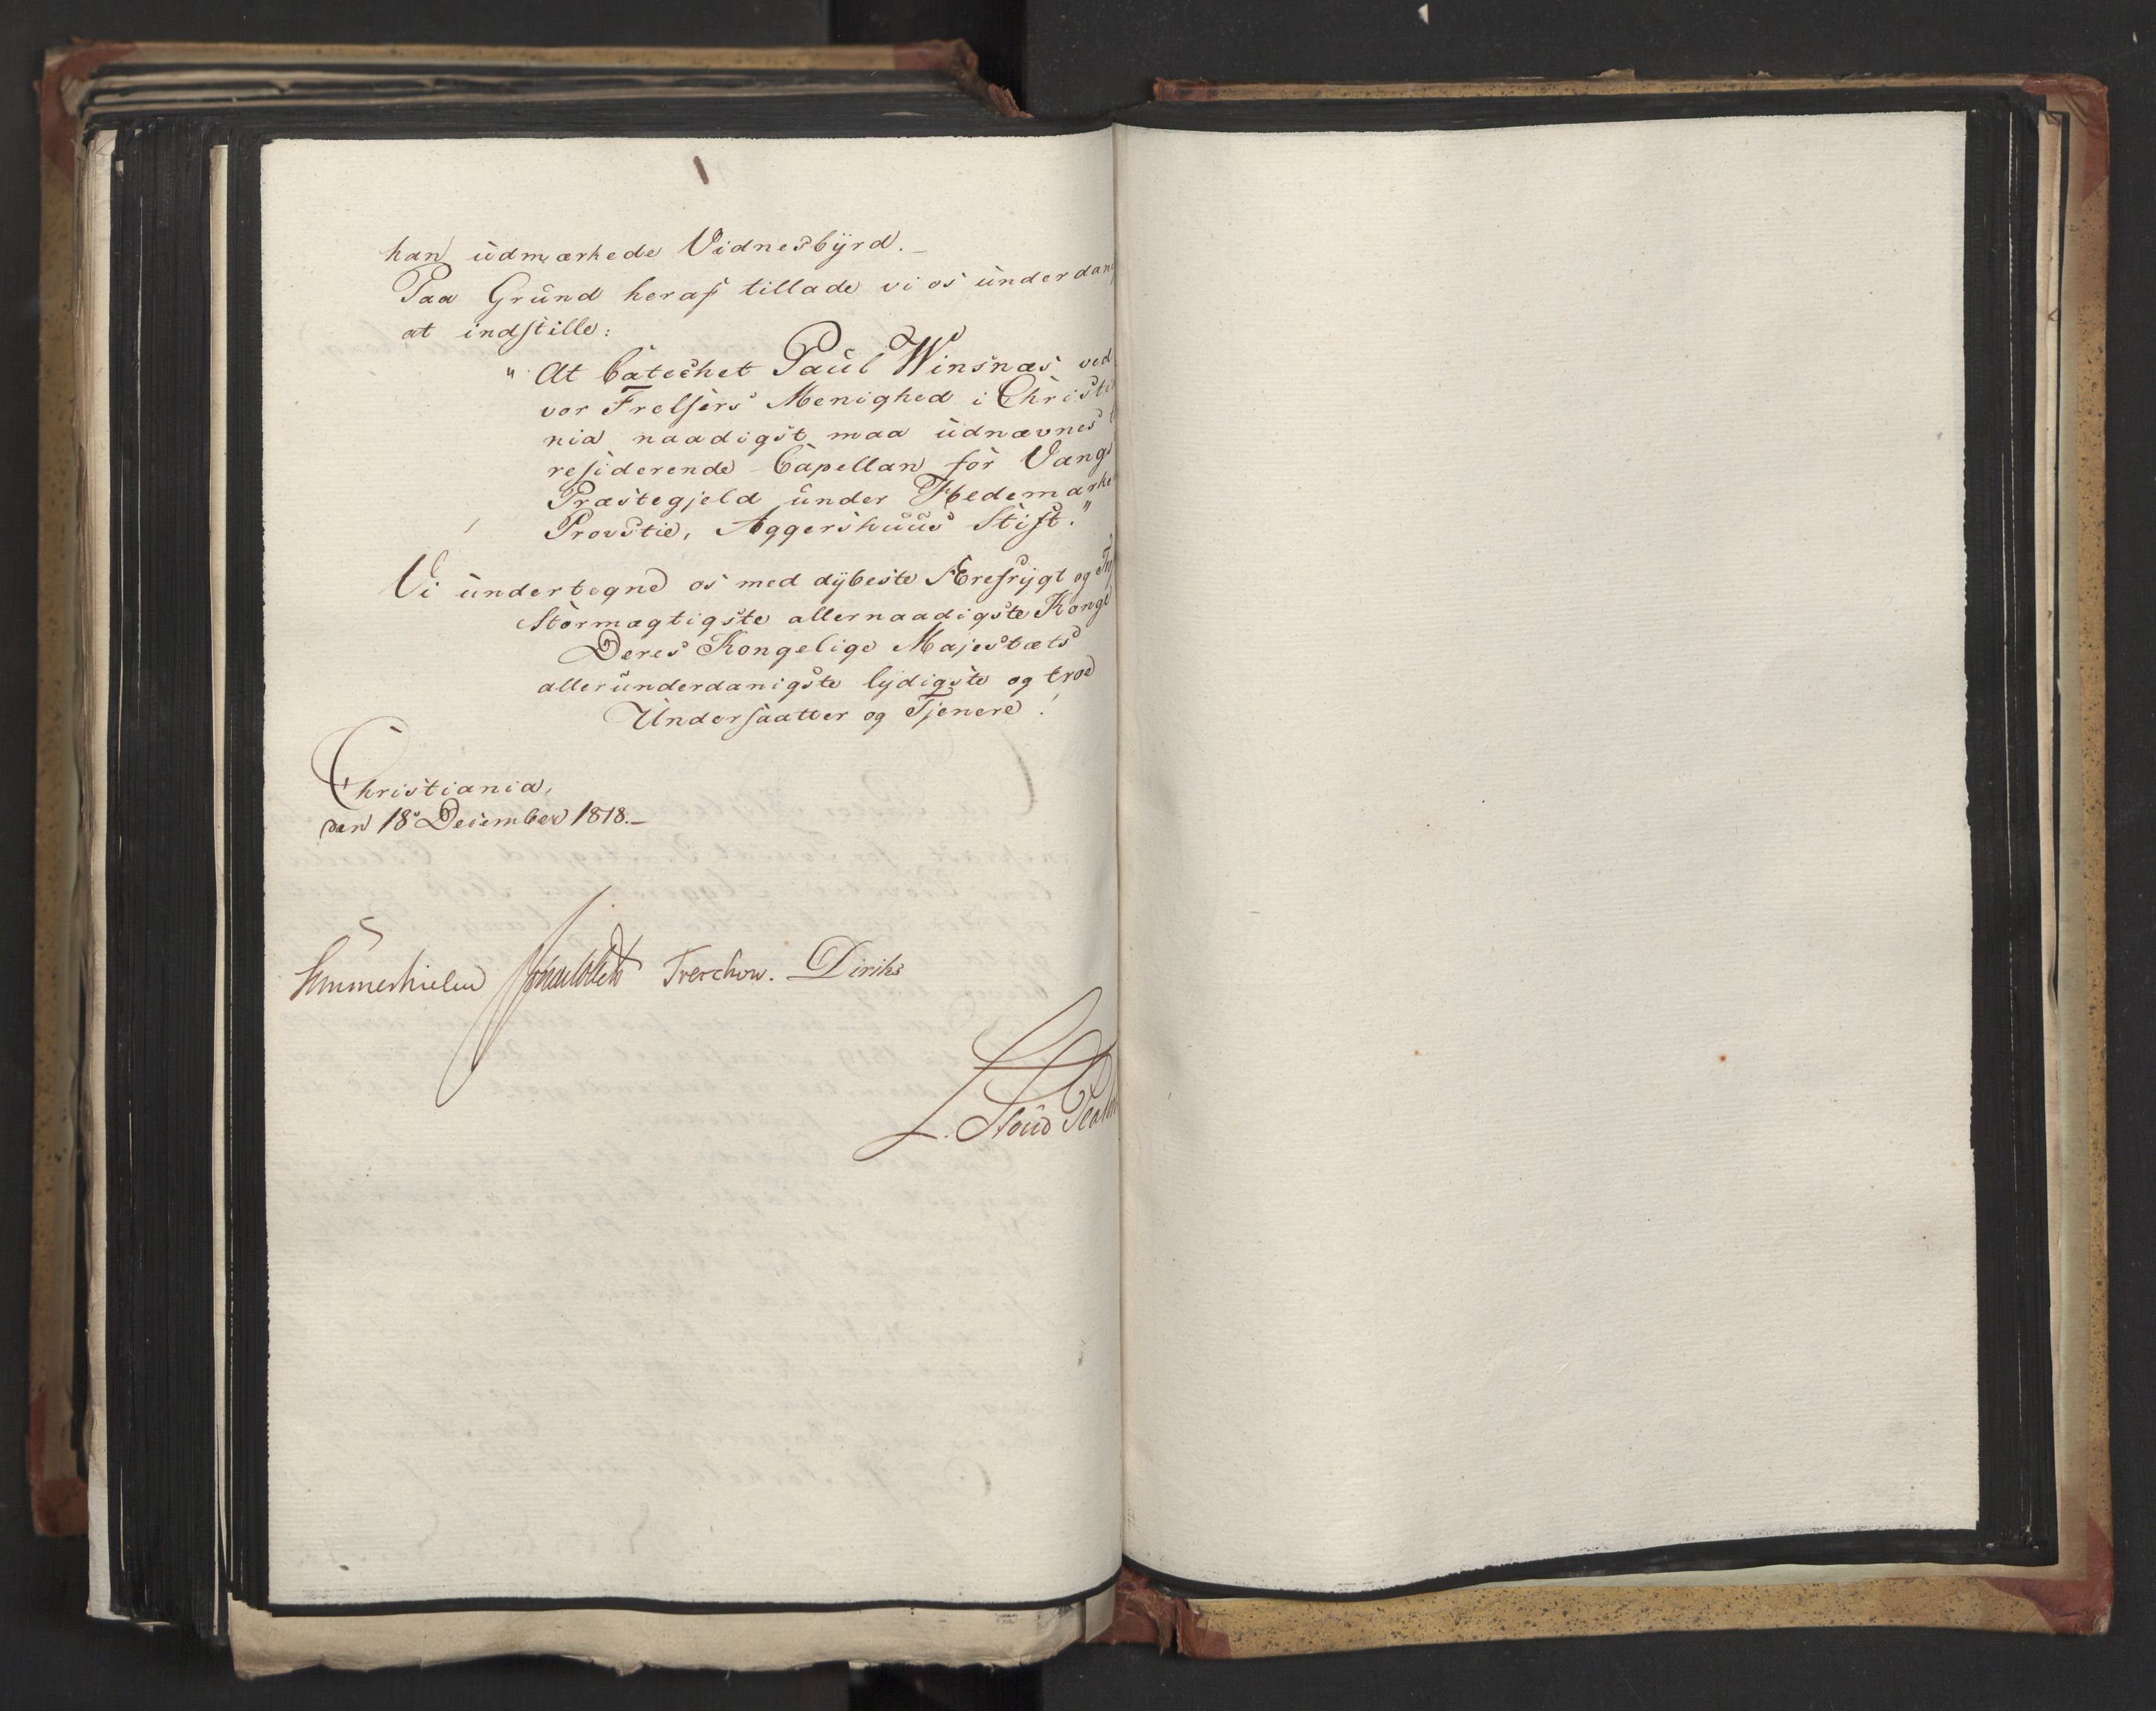 han udmærkede Vidnesbyrd. –
Paa Grund heraf tillade vi os underdan
at indstille:
" At Catechet Paul Winsnæs ved
vor Frelsers Menighed i Christi
nia naadigst maa udnævnes
residerende Capellan for Vangs
Præstegjeld under Hedemarke
Provstie, Aggershuus Stift."
Vi undertegne os med dybeste Ærefrygt og
Stormægtigste allernaadigste Konge
Deres Kongelige Majestæts
allerunderdanigste lydigste og troe
Undersaatter og Tjenere!
Christiania,
den 18de December 1818. –
Sommerhielm Treschow. Diriks
L. Stoud Plat